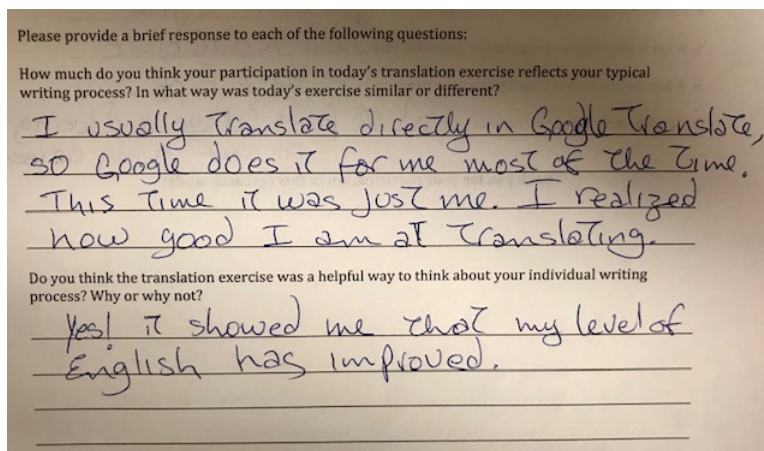 Please provide a brief response to each of the following questions:
How much do you think your participation in today's translation exercise reflects your typical
writing process? In what way was today's exercise similar or different?
I usually Translate directly in Google Translate,
so Google does it for me most of the Time.
This Time it was just me. I realized
how good I am at Translating.
Do you think the translation exercise was a helpful way to think about your individual writing
process? Why or why not?
Yes! it showed me that my level of
English has improved.